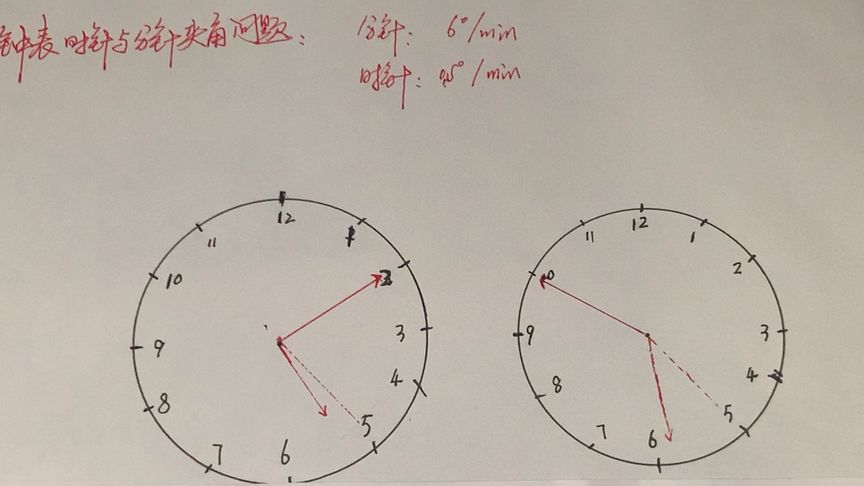 钟表时针与分针夹角问题：
分针： 6°/min
时针： 0.5°/min
12
1
2
3
4
5
6
7
8
9
10
11
12
1
2
3
4
5
6
7
8
9
10
11